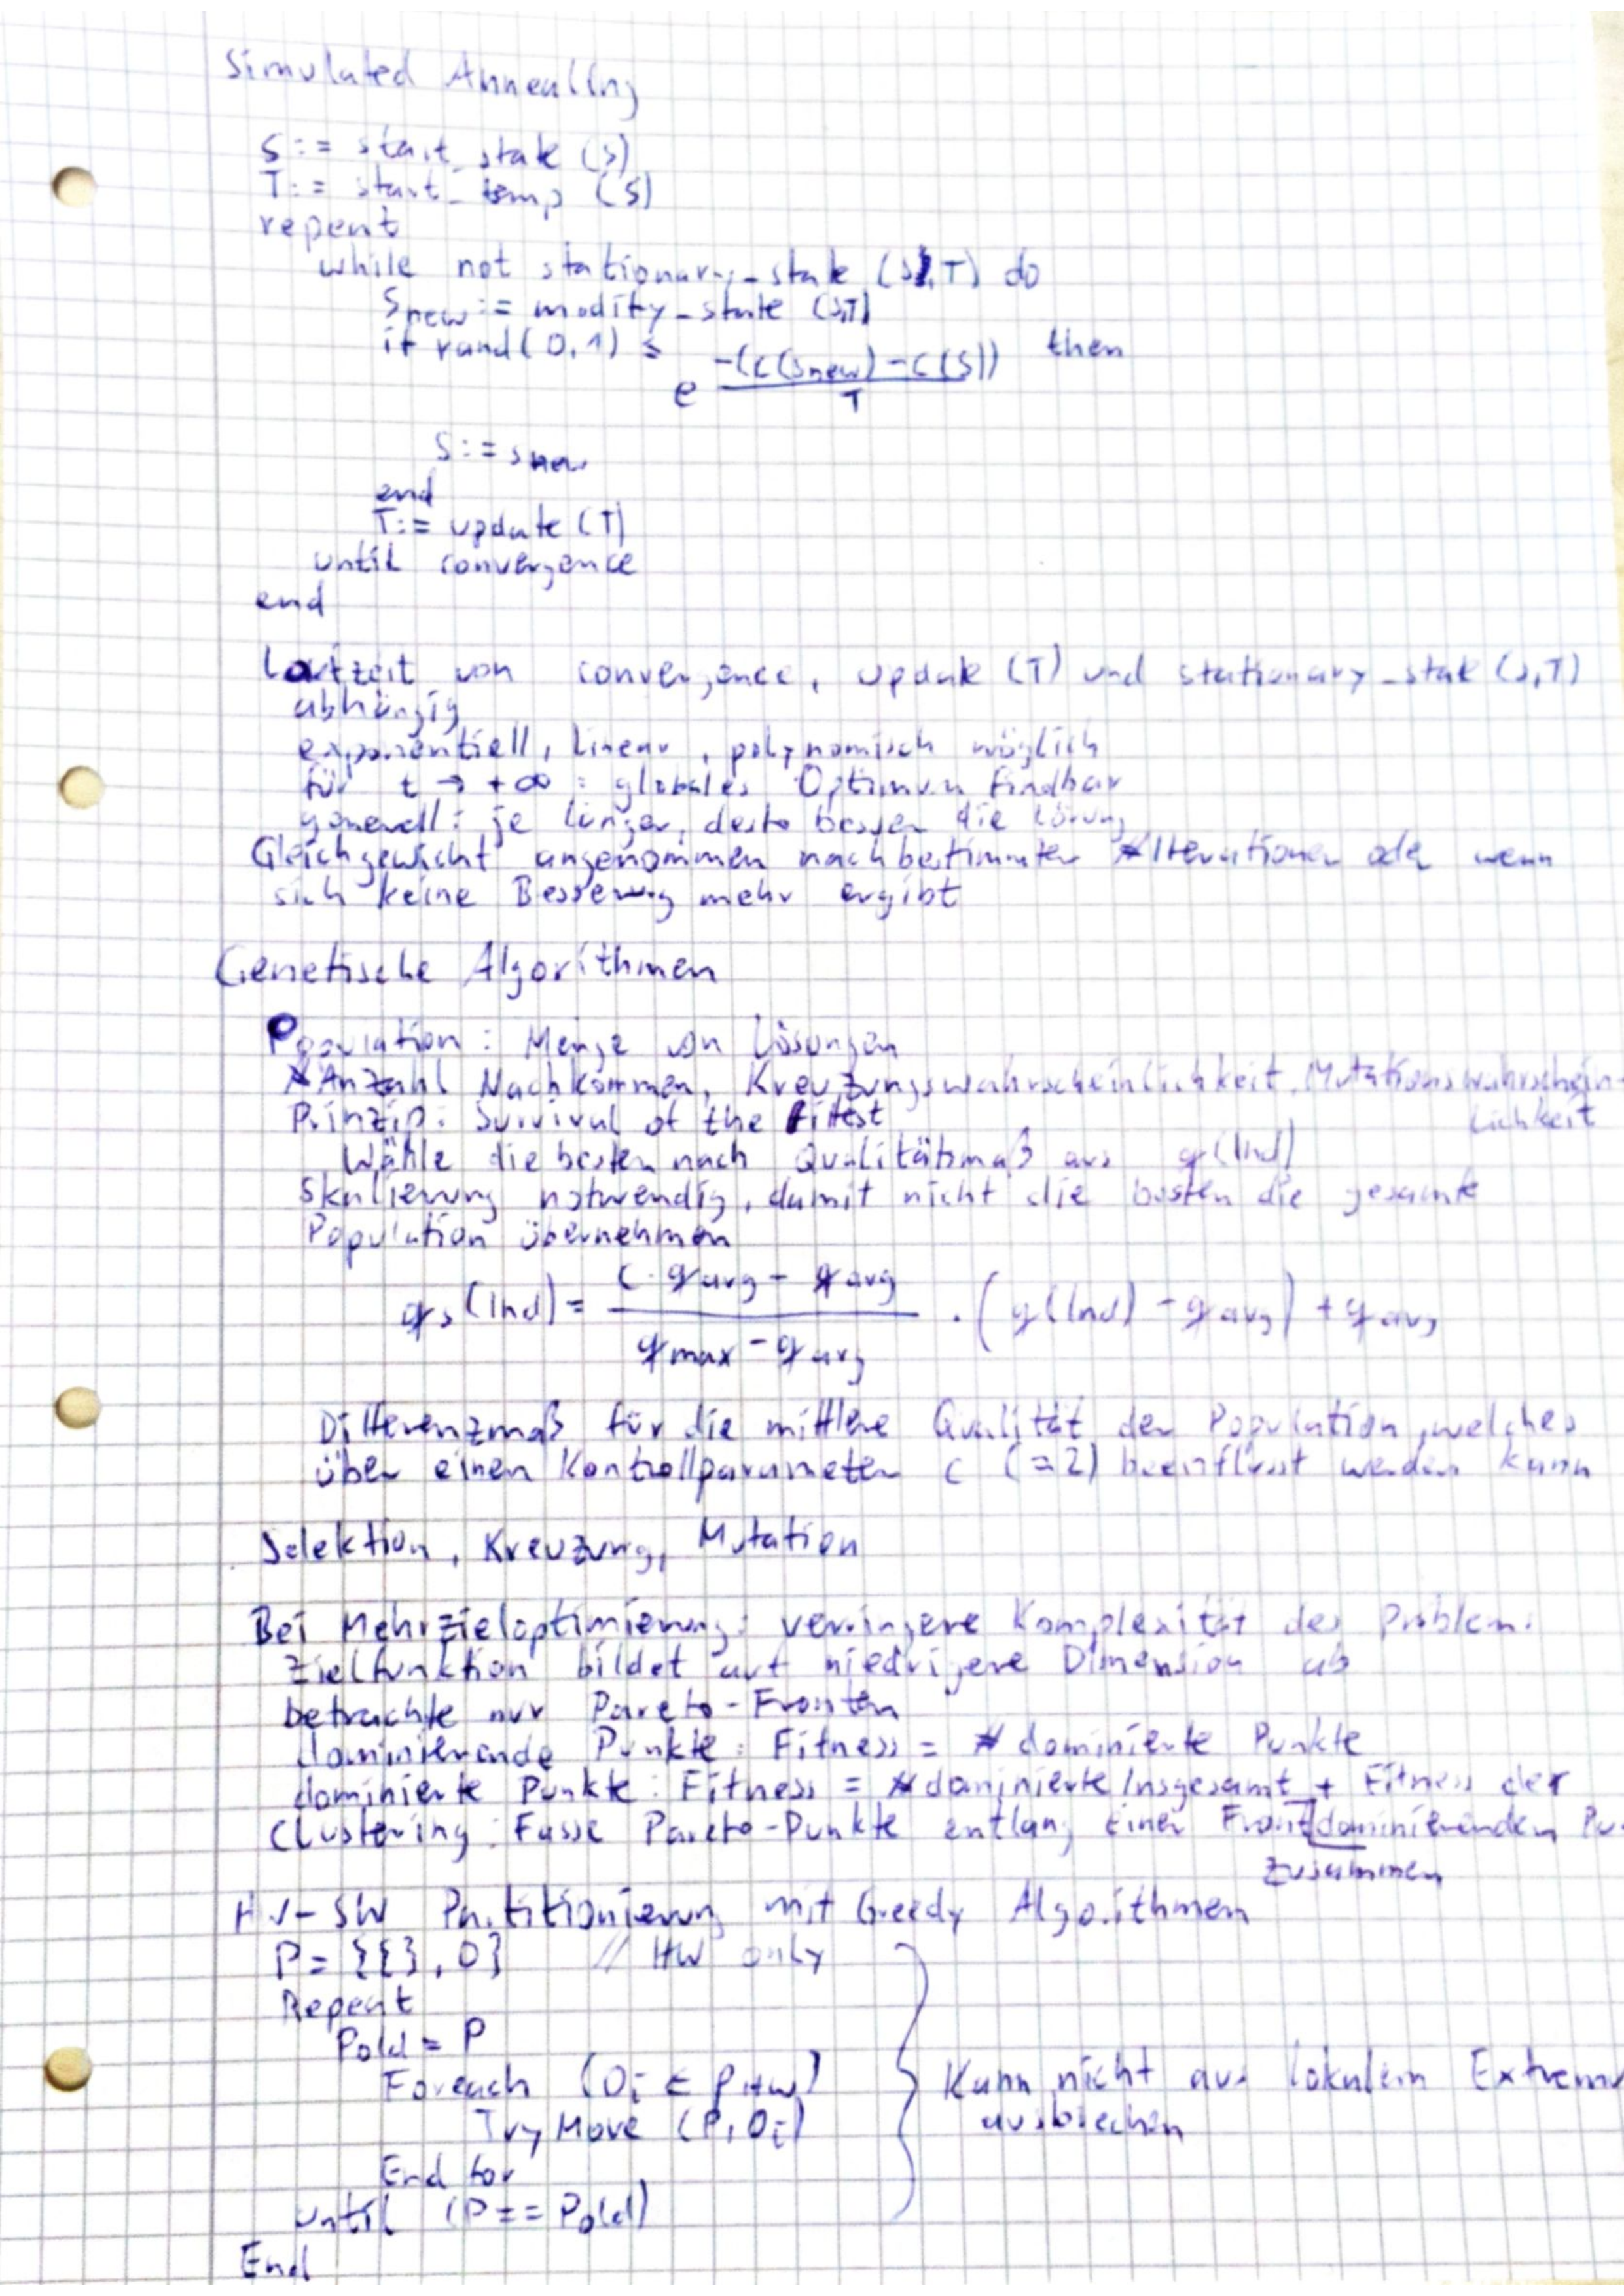 Simulated Annealing
S := start_state (S)
T := start_temp (S)
repeat
while not stationary_state (S,T) do
Snew := modify_state (S,T)
if rand(0,1) ≤ e^(-(c(Snew) - c(S)) / T) then
S := Snew
end
T := update (T)
until convergence
end
Laufzeit von convergence, update (T) und stationary_state (S,T)
abhängig
exponentiell, linear, polynomisch möglich
für t → +∞ : globales Optimum findbar
generell: je länger, desto besser die Lösung
Gleichgewicht angenommen nach bestimmten #Iterationen oder wenn
sich keine Besserung mehr ergibt
Genetische Algorithmen
Population : Menge von Lösungen
Anzahl Nachkommen, Kreuzungswahrscheinlichkeit, Mutationswahrschein-
lichkeit
Prinzip: Survival of the Fittest
Wähle die besten nach Qualitätsmaß aus q(Ind)
Skalierung notwendig, damit nicht die besten die gesamte
Population übernehmen
qs(Ind) = (c · qavg - qavg) / (qmax - qavg) · (q(Ind) - qavg) + qavg
Differenzmaß für die mittlere Qualität der Population, welches
über einen Kontrollparameter c (=2) beeinflusst werden kann
Selektion, Kreuzung, Mutation
Bei Mehrzieloptimierung: verringere Komplexität des Problems
Zielfunktion bildet auf niedrigere Dimension ab
betrachte nur Pareto-Fronten
dominierende Punkte : Fitness = # dominierte Punkte
dominierte Punkte : Fitness = # dominierte Insgesamt + Fitness der
dominierenden Pu
Clustering : Fasse Pareto-Punkte entlang einer Front
zusammen
HW-SW Partitionierung mit Greedy Algorithmen
P = {{}, O} // HW only
Repeat
Pold = P
Foreach (Oi ∈ PHW)
TryMove (P, Oi)
End for
until (P == Pold)
End
Kann nicht aus lokalem Extrema
ausbrechen